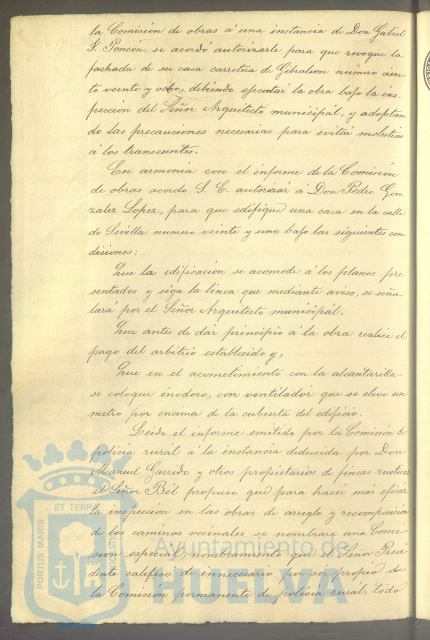 la Comisión de obras á una instancia de Don Gabriel
S. Poncon, se acordó autorizarle para que revoque la
fachada de su casa carretera de Gibraleon numero cien-
to veinte y ocho, debiendo ejecutar la obra bajo la ins-
pección del Señor Arquitecto municipal, y adoptan-
do las precauciones necesarias para evitar molestias
á los transeuntes.
En armonía con el informe de la Comisión
de obras acordo S. E. autorizar á Don Pedro Gon-
zalez Lopez, para que edifique una casa en la calle
de Sevilla numero veinte y uno bajo las siguientes con-
diciones:
Que la edificación se acomode á los planos pre-
sentados y siga la linea que mediante aviso, se seña-
lará por el Señor Arquitecto municipal.
Que antes de dar principio á la obra realice el
pago del arbitrio establecido y,
Que en el acometimiento con la alcantarilla
se coloque inodoro, con ventilador que se eleve un
metro por encima de la cubierta del edificio.
Leido el informe emitido por la Comisión de
policia rural á la instancia deducida por Don
Manuel Garrido y otros propietarios de fincas rusticas
el Señor Bel propuso que para hacer más eficaz
la inspección en las obras de arreglo y recomposición
de los caminos vecinales se nombrara una Comi-
sión especial, nombramiento que el Señor Presi-
dente calificó de innecesario por ser propio de
la Comisión permanente de policia rural, todo
PORTUS MARIS
ET TERRA
Ayuntamiento de
HUELVA